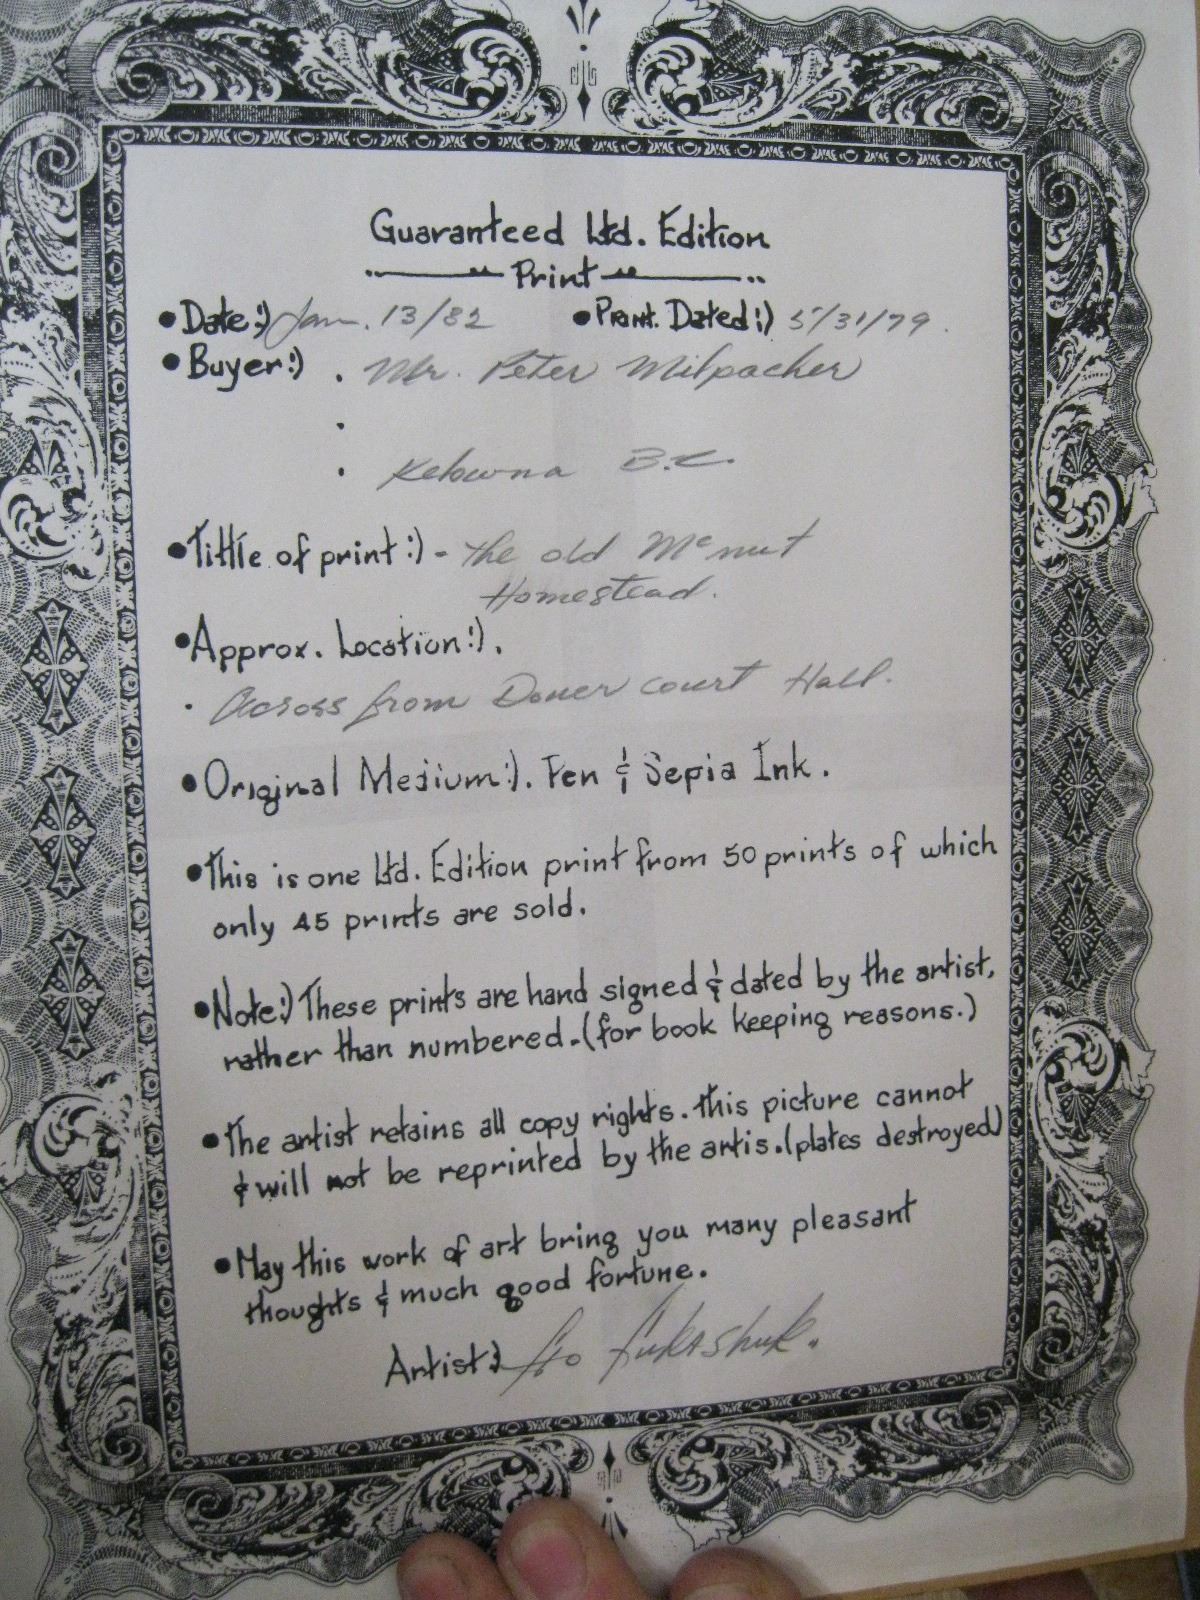 Guaranteed Ltd. Edition
Print
• Date:) Jan. 13/82 • Print. Dated:) 5/31/79.
• Buyer:) . Mr. Peter Milpacher
.
. Kelowna B.C.
• Tittle of print:) - the old Mc nut
Homestead.
• Approx. Location:).
. Across from Doner court Hall.
• Original Medium:). Pen & Sepia Ink.
• This is one Ltd. Edition print from 50 prints of which
only 45 prints are sold.
• Note:) These prints are hand signed & dated by the artist,
rather than numbered. (for book keeping reasons.)
• The artist retains all copy rights. this picture cannot
& will not be reprinted by the artis. (plates destroyed)
• May this work of art bring you many pleasant
thoughts & much good fortune.
Artist:)